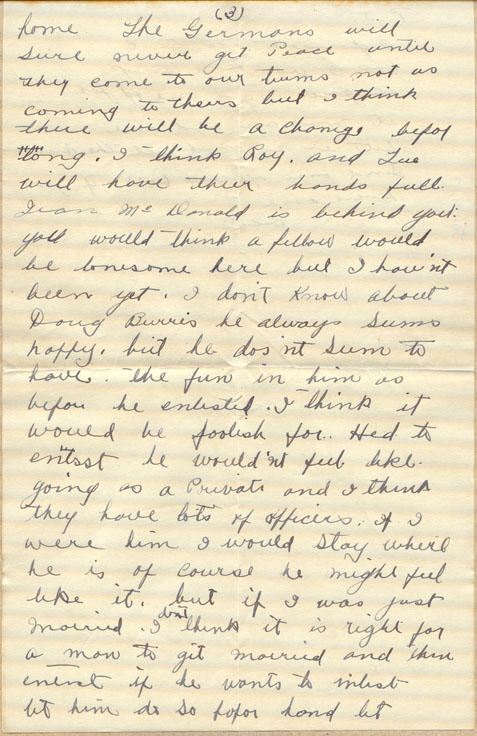 (3)
home The Germans will
sure never get Peace until
they come to our turms not us
coming to theirs but I think
there will be a change befor
long. I think Roy. and Lue
will have their hands full.
Jean Mc Donald is behind you.
you would think a fellow would
be lonesome here but I hav'nt
been yet. I don't know about
Doug Burris he always sums
happy. but he dos'nt sum to
have. the fun in him as
before he enlisted. I think it
would be foolish for. Hed to
he would'nt feel like.
going as a Private and I think
they have lots of officers. if I
were him I would stay where
he is of course he might feel
like it. but if I was just
married. I dont think it is right for
a man to git married and then
enlist if he wants to inlist
let him do so hand let